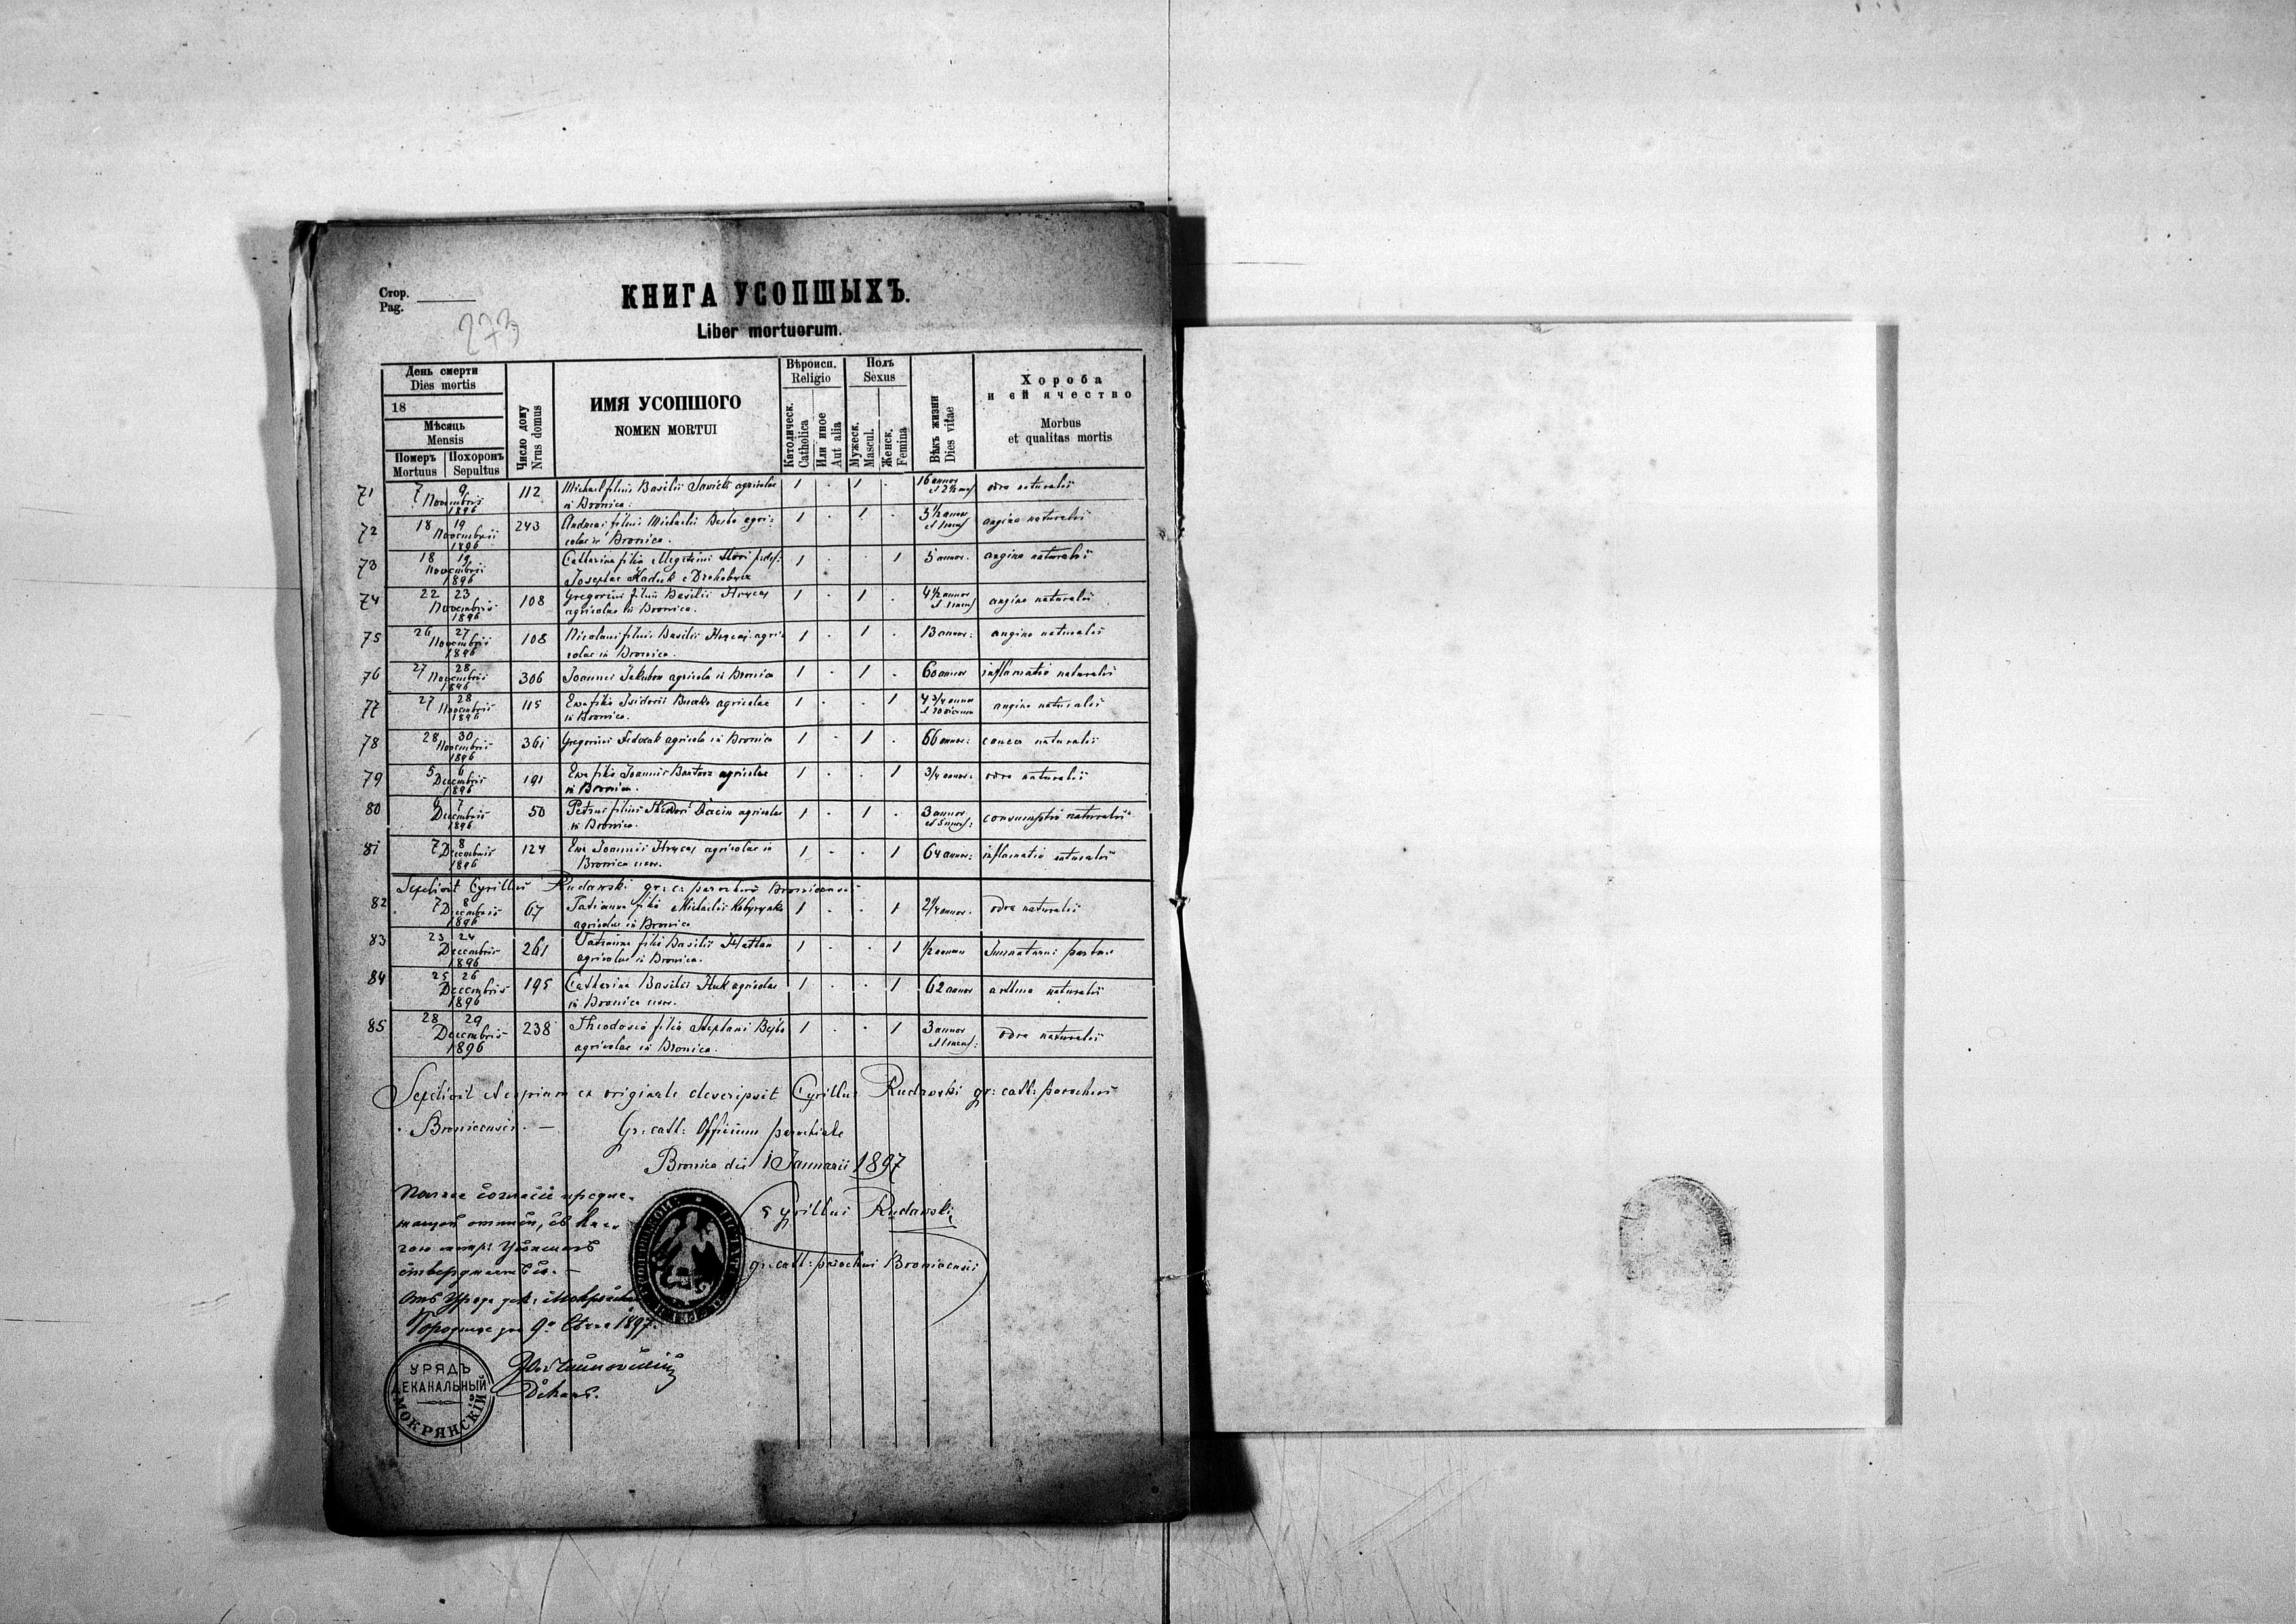 Стор.
Pag.
273
КНИГА УСОПШЫХЪ.
Liber mortuorum.
День смерти
Dies mortis
18
Мѣсяць
Mensis
Померъ Похоронъ
Mortuus Sepultus
Число дому
Nrus domus
ИМЯ УСОПШОГО
NOMEN MORTUI
Вѣроисп.
Religio
Католическ.
Catholica
Или иное
Aut alia
Полъ
Sexus
Мужеск.
Mascul.
Женск.
Femina
Вѣкъ жизни
Dies vitae
Хороба
и еѣ ячество
Morbus
et qualitas mortis
71 7 9 112 Michael filius Basilii agricolae 1 . 1 . 16 annor odra naturalis
Novembris in Bronica.
1896
72 18 19 243 Andreas filius Michaelis Bejba agri- 1 . 1 . 5 1/2 annor angina naturalis
Novembris colae in Bronica. et 1 mens
1896
73 18 19 Catharina filia 1 . . 1 5 annor. angina naturalis
Novembris Josephae Haduk e Drohobycz
1896
74 22 23 108 Gregorius filius Basilii Hrycaj 1 . 1 . 4 1/2 annor angina naturalis
Novembris agricolae in Bronica. et 1 mens
1896
75 26 27 108 Nicolaus filius Basilii Hrycaj agri- 1 . 1 . 13 annor: angina naturalis
Novembris colae in Bronica.
1896
76 27 28 306 Joannes Jakubow agricola in Bronica 1 . 1 . 60 annor inflamatio naturalis
Novembris
1896
77 27 28 115 Ewa filia Isidorii agricolae 1 . . 1 4 3/4 annor angina naturalis
Novembris in Bronica.
1896
78 28 30 361 Gregorius Fedorak agricola in Bronica 1 . 1 . 66 annor: cancer naturalis
Novembris
1896
79 5 6 191 Ewa filia Joannis agricolae 1 . . 1 3/4 annor. odra naturalis
Decembris in Bronica.
1896
80 6 7 50 Petrus filius Theodori Dacin agricolae 1 . 1 . 3 annor consumptio naturalis
Decembris in Bronica. et 5 mens:
1896
81 7 8 124 Ewa Joannis Hrycaj agricolae in 1 . . 1 64 annor: inflamatio naturalis
Decembris Bronica uxor.
1896
Sepelivit Cyrillus Rudawski gr: c: parochus Bronicensis
82 7 8 67 Tatianna filia Michaelis 1 . . 1 2 1/4 annor. odra naturalis
Decembris agricolae in Bronica
1896
83 23 24 261 Tatianna filia Basilii 1 . . 1 1/2 Immaturus partus
Decembris agricolae in Bronica.
1896
84 25 26 195 Catharina Basilii Huk agricolae 1 . . 1 62 annor asthma naturalis
Decembris in Bronica uxor.
1896
85 28 29 238 Theodosia filia Stephani Bejba 1 . . 1 3 annor odra naturalis
Decembris agricolae in Bronica. et 1 mens:
1896
Sepelivit et copiam ex originale descripsit Cyrillus Rudawski gr: cath: parochus
Bronicensis. —
Gr: cath: Officium parochiale
Bronica die 1 Januarii 1897
Cyrillus Rudawski
gr: cath: parochus Bronicensis
Полное согласіе предле-
жащои
стверджаеся. —
Отъ Уряду дек:
9 1897.
УРЯДЪ
ДЕКАНАЛЬНЫЙ
МОКРЯНСКІЙ
Деканъ.